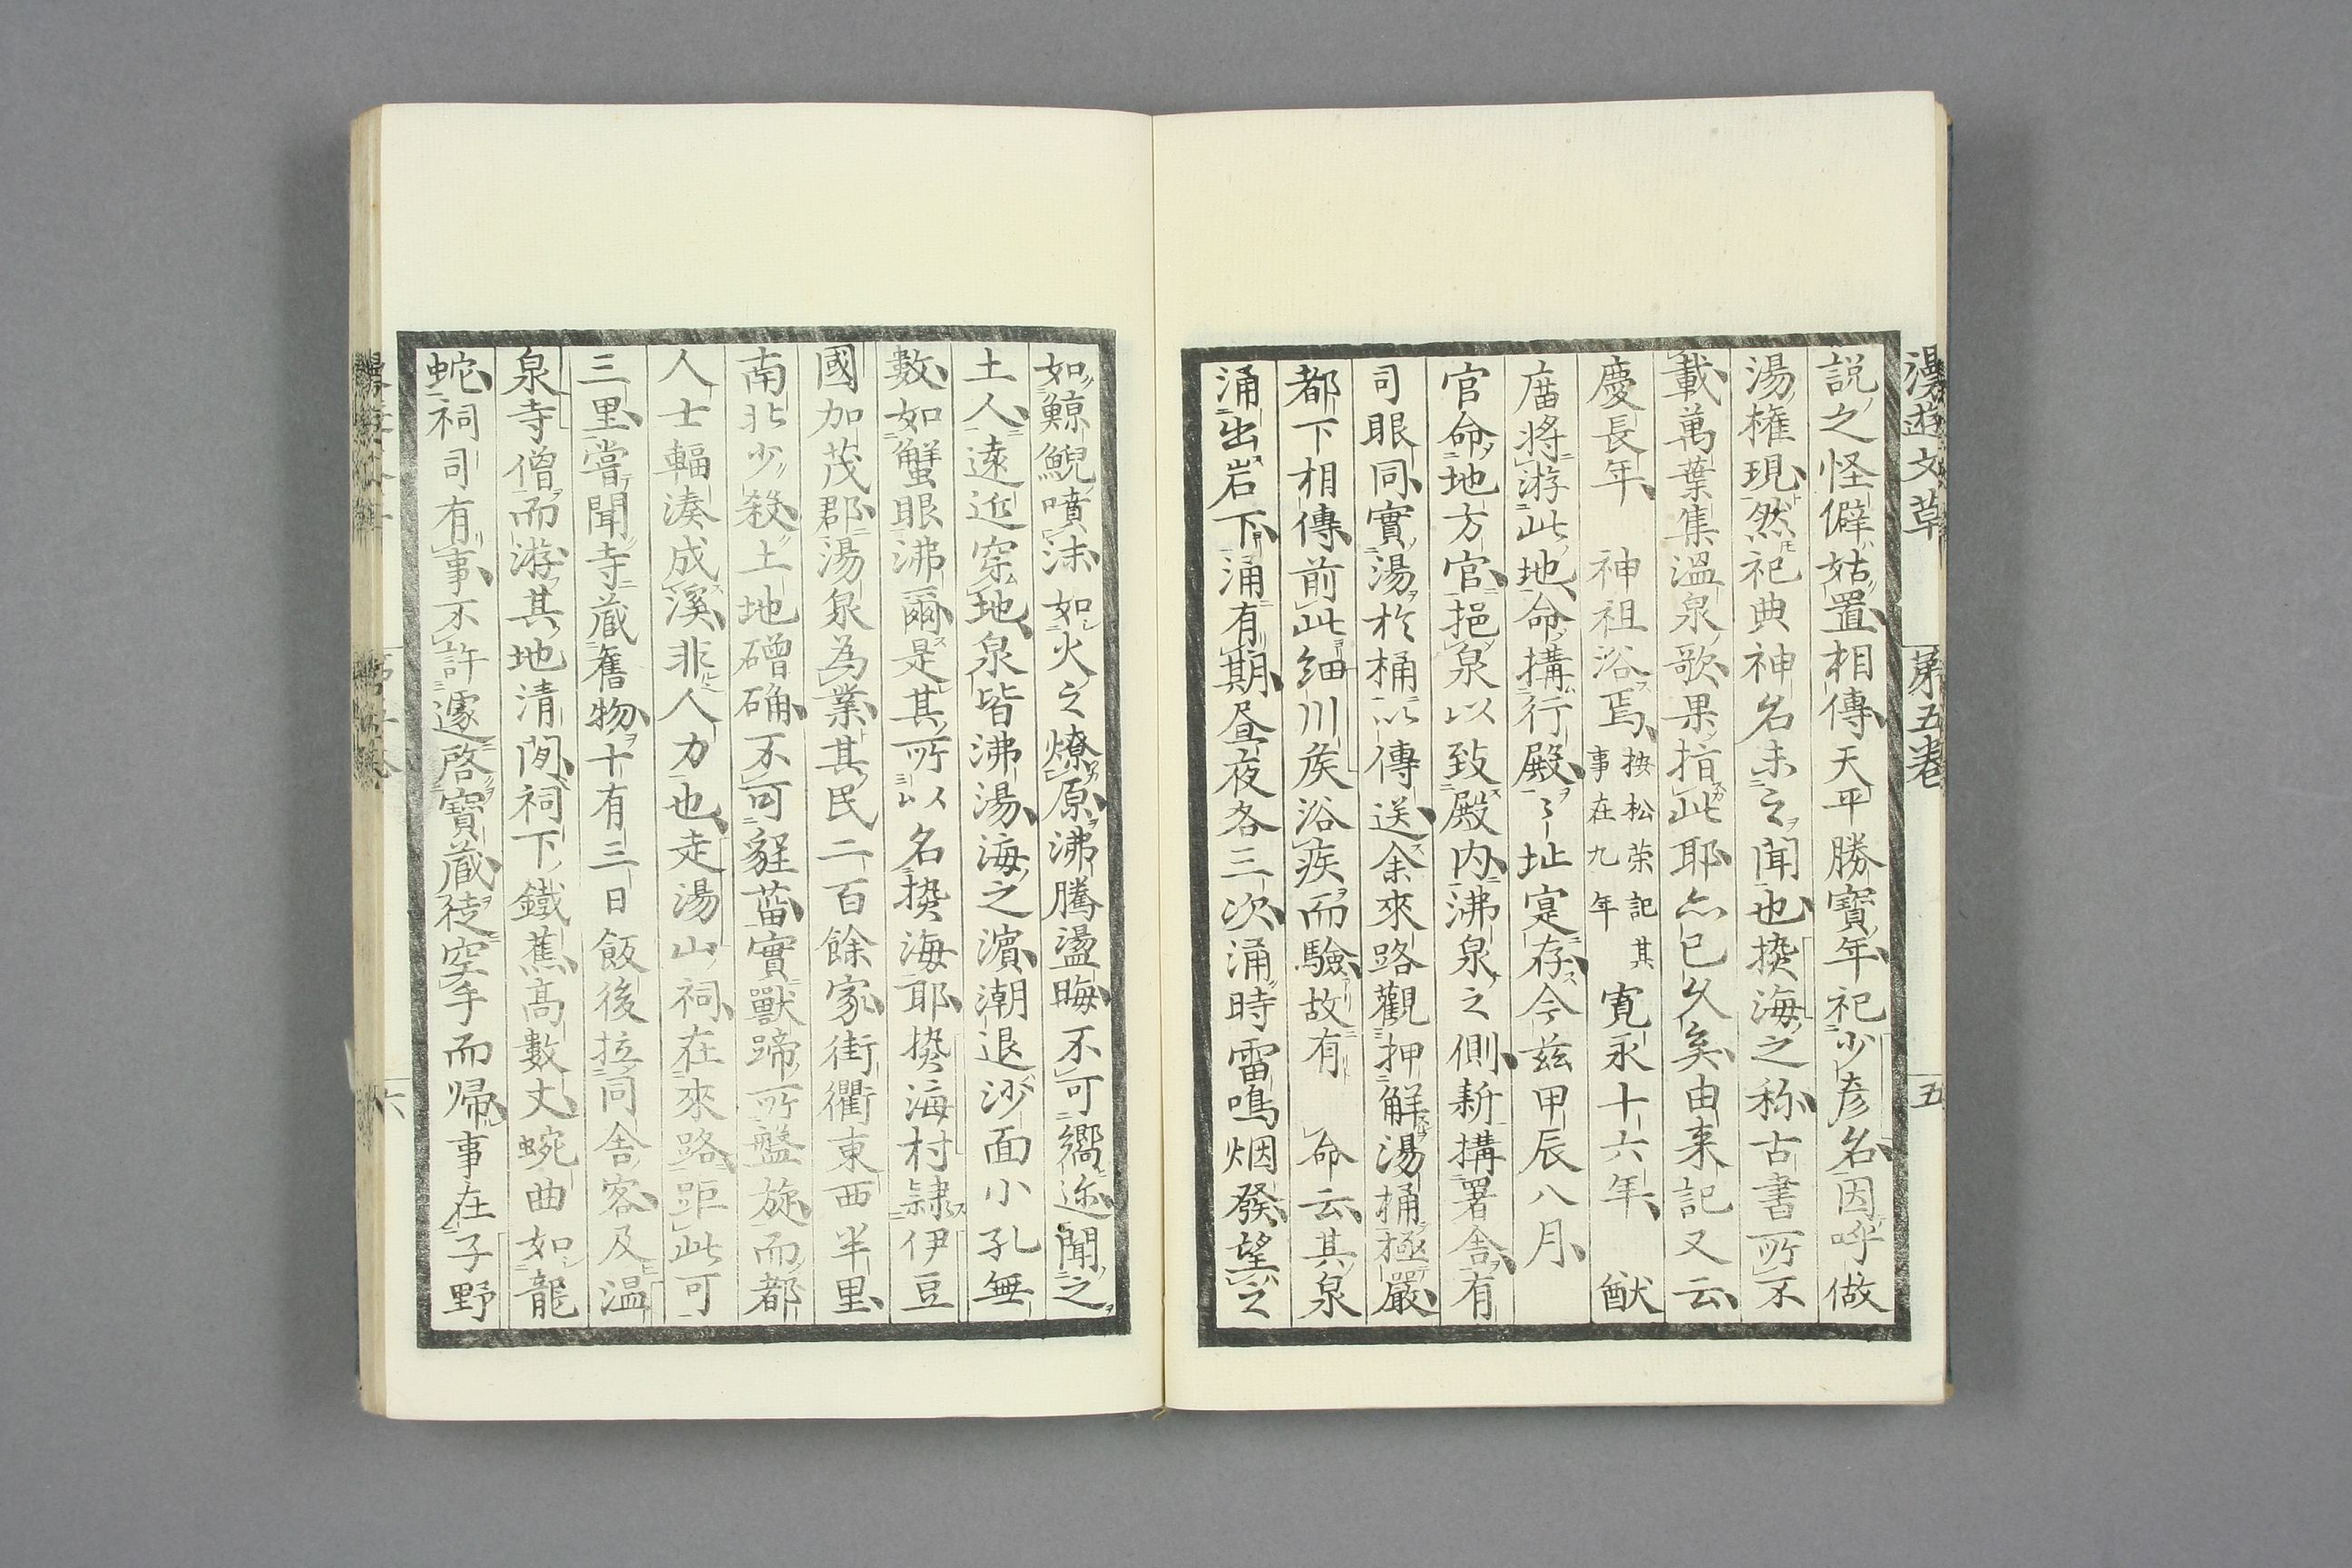 漫遊文草 第五卷 五
説之怪僻姑置相傳天平勝寶年祀少彦名因呼做
湯権現然祀典神名未之聞也𤍠海之称古書所不
載萬葉集溫泉歌果指此耶亦已久矣由来記又云
慶長年 神祖浴焉按松荣記其事在九年寛永十六年 猷
庿将游此地命搆行殿〻址寔存今茲甲辰八月
官命地方官挹泉以致殿内沸泉之側新搆署舎有
司眼同實湯於桶以傳送余來路觀押解湯桶極嚴
都下相傳前此細川侯浴疾而驗故有 命云其泉
涌出岩下涌有期昼夜各三次涌時雷鳴烟發望之
如鯨鯢噴沫如火之燎原沸騰盪晦不可嚮迩聞之
土人遠近穿地泉皆沸湯海之濵潮退沙面小孔無
數如蟹眼沸爾是其所以名𤍠海耶𤍠海村隷伊豆
國加茂郡湯泉為業其民二百餘家街衢東西半里
南北少殺土地磳确不可畊菑實獸蹄所盤旋而都
人士輻湊成溪非人力也走湯山祠在來路距此可
三里嘗聞寺蔵舊物十有三日飯後拉同舎客及温
泉寺僧而游其地清閒祠下鐵蕉高數丈蜿曲如龍
蛇祠司有事不許遽啓寶蔵徒空手而帰事在子野
六